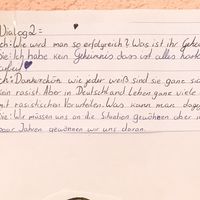 Dialog 2 =
ch: Wie wird man so erfolgreich? Was ist ihr Gehei
Sie: Ich habe kein Geheimnis dass ist alles harte
arbeit
ch: Dankeschön wie jeder weiß sind sie ganz sic
kein rasist. Aber in Deutschland Leben ganz viele
mit rasistischen Vorurteilen. Was kann man dage
Sie: Wir müssen uns an die Situation gewöhnen aber in
paar Jahren gewöhnen wir uns daran.